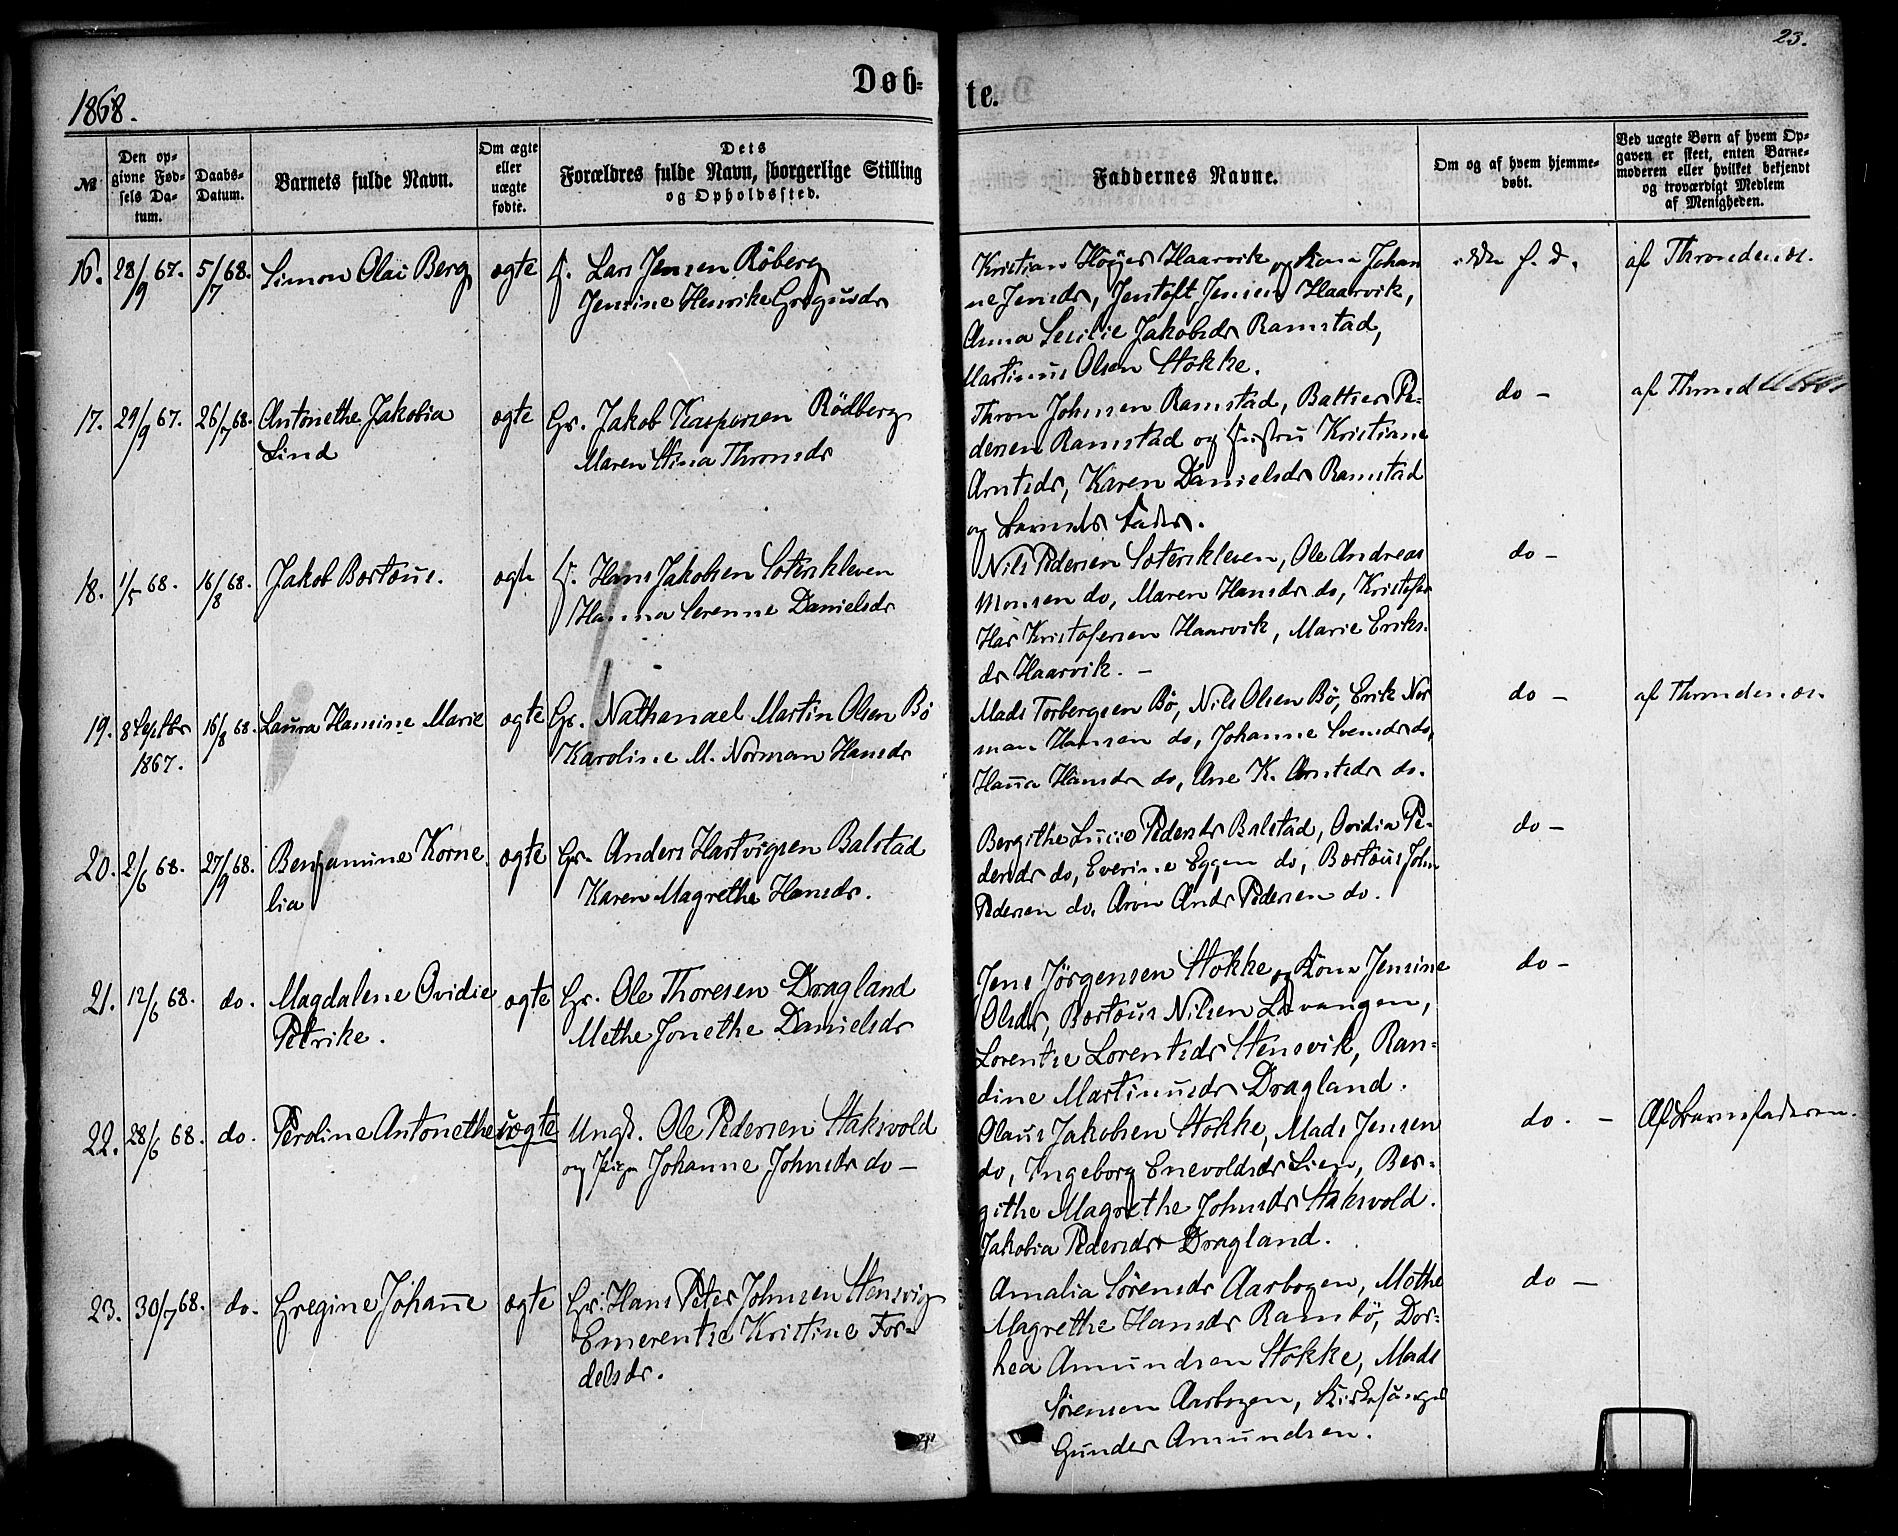 23.
1868.
Døb-
te.
№
Den op-
givne Fød-
sels Da-
tum.
Daabs-
Datum.
Barnets fulde Navn.
Om ægte
eller
uægte
fødte.
Dets
Forældres fulde Navn, borgerlige Stilling
og Opholdssted.
Faddernes Navne.
Om og af hvem hjemme-
døbt.
Ved uægte Børn af hvem Op-
gaven er skeet, enten Barne-
moderen eller hvilket bekjendt
og troværdigt Medlem
af Menigheden.
16. 28/9 67. 5/7 68. Simon Olai Berg ægte
Lars Jensen Røberg
Jensine Henrike Gregusdr
Kristian Høyer Haarvik og Kone Johan
ne Jensdr, Jentoft Jensen Haarvik,
Anna Secilie Jakobsdr Ramstad,
Martinus Olsen Stokke.
f. d.
af Throndenæs.
17. 29/9 67. 26/7 68. Antonethe Jakobia
Lind
ægte
Gr. Jakob Kaspersen Rødberg
Maren Stina Thronsdr
Thron Johnsen Ramstad, Baltser Pe-
dersen Ramstad og Hustru Kristiane
Arntsdr, Karen Danielsdr Ramstad
og Barnets Fader.
do -
af Thrond
18. 1/5 68. 16/8 68. Jakob Bertæus. ægte
Hans Jakobsen Sæterskleven
Hanna Serenne Danielsdr
Nils Pedersen Sæterskleven, Ole Andreas
Monsen do, Maren Hansdr do, Kristofer
Kristofersen Haarvik, Marie Eriks-
dr Haarvik. -
do -
19. 8 Septbr
1867.
16/8 68. Laura Hansine Marie ægte
Gr. Nathanael Martin Olsen Bø
Karoline M. Norman Hansdr
Mads Torbergsen Bø, Nils Olsen Bø, Erik Nor
man Hansen do, Johanne Svensdr do,
Hanna Hansdr do, Ane K. Arntsdr do.
do -
af Throndenæs.
20. 2/6 68. 27/9 68. Benjamine Korne
lia
ægte
Gr. Anders Hartvigsen Balstad
Karen Magrethe Hansdr.
Bergithe Lucie Pedersdr Balstad, Ovidia Pe-
dersdr do, Everine Eggen do, Bertæus John
Pedersen do, Aron Andr Pedersen do.
do -
21. 12/6 68. do. Magdalene Ovidie
Petrike.
ægte
Gr. Ole Thoresen Dragland
Methe Jonethe Danielsdr
Jens Jørgensen Stokke og Kone Jensine
Olsdr, Bertæus Nilsen Lavangen,
Lorentse Lorentsdr Stensvik, Ran-
dine Martinusdr Dragland.
do -
22. 28/6 68. do. Peroline Antonethe uægte
Ungk. Ole Pedersen Staksvold
og Pige Johanne Johnsdr do -
Olaus Jakobsen Stokke, Mads Jensen
do, Ingeborg Enevoldsdr Lien, Ber-
githe Magrethe Johnsdr Staksvold.
Jakobia Pedersdr Dragland.
do. -
Af Barnefaderen.
23. 30/7 68. do. Gregine Johanne ægte
Gr. Hans Peter Johnsen Stensvig
Emerentse Kristine For-
delsdr.
Amalia Sørensdr Aarbogen, Methe
Magrethe Hansdr Rambø, Dor-
hea Amundsen Stokke, Mads
Sørensen Aarbogen, Kirkesanger
Gunder Amundsen.
do -